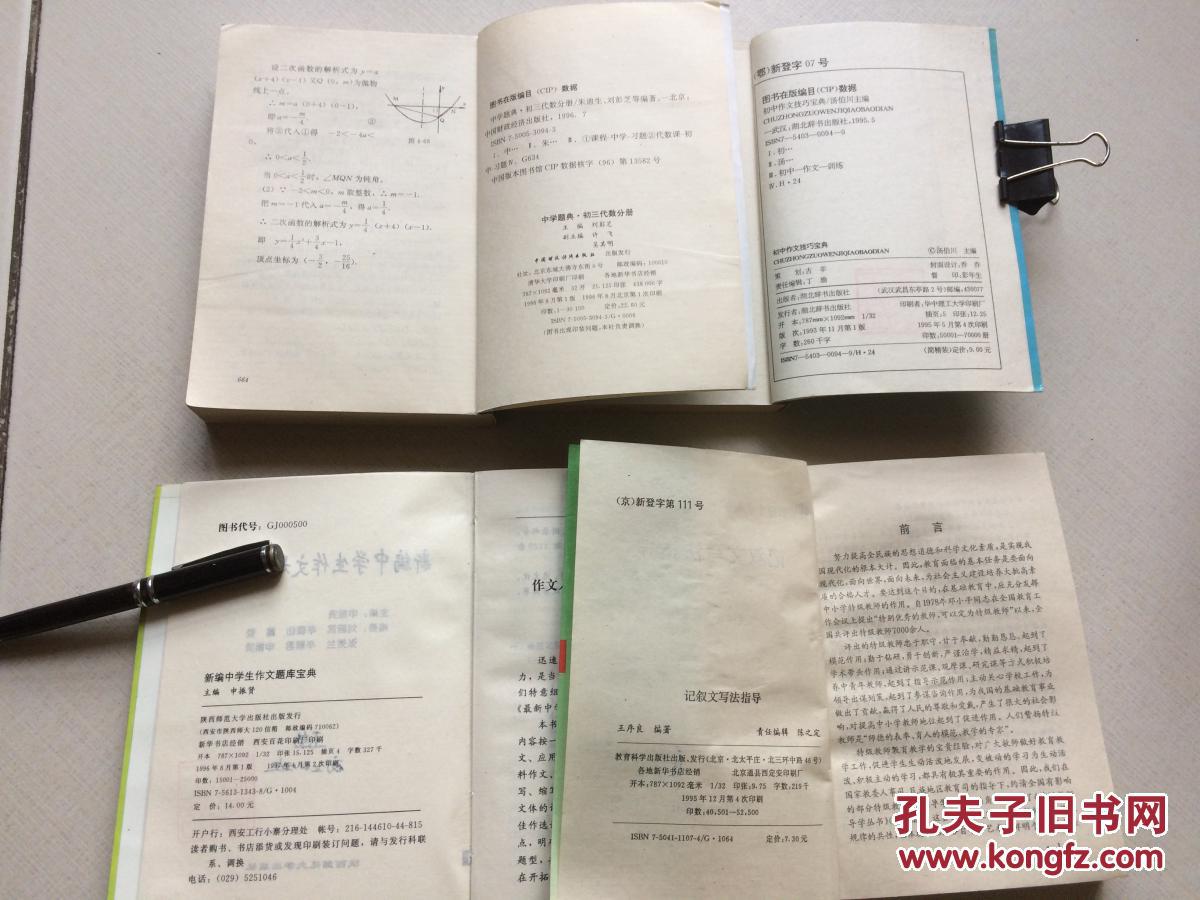 设二次函数的解析式为 y=a
(x+4)(x-1)又Q(0，m)为抛物
线上一点。
∴ m=a(0+4)(0-1)，
即 a=-m/4 ②
将②代入①得 -2<-4a<
0，
∴ 0<a<1/2，
当 0<a<1/2时，∠MQN为钝角。
(2) ∵ -2<m<0，m取整数，∴ m=-1。
把m=-1代入a=-m/4，得a=1/4。
∴ 二次函数的解析式为y=1/4(x+4)(x-1)。
即 y=1/4x²+3/4x-1，
顶点坐标为(-3/2，-25/16)。
M
N
Q
664
图书在版编目(CIP)数据
中学题典·初三代数分册/朱迪生、刘彭芝等编著。—北京：
中国财政经济出版社，1996.7
ISBN 7-5005-3094-3
Ⅰ.中… Ⅱ.朱… Ⅲ.①课程-中学-习题②代数课-初
中-习题Ⅳ.G634
中国版本图书馆CIP数据核字(96)第13582号
中学题典·初三代数分册
主编 刘彭芝
副主编 许飞
吴其明
中国财政经济出版社 出版发行
社址：北京东城大佛寺东街8号 邮政编码：100010
清华大学印刷厂印刷 各地新华书店经销
787×1092毫米 32开 25.125印张 618 000字
1996年8月第1版 1996年8月北京第1次印刷
印数：1—30 100 定价：22.80元
ISBN 7-5005-3094-3/G·0006
(图书出现印装问题，本社负责调换)
(鄂)新登字07号
图书在版编目(CIP)数据
初中作文技巧宝典/汤伯川主编
CHUZHONGZUOWENJIQIAOBAODIAN
—武汉：湖北辞书出版社，1995.5
ISBN7—5403—0094—9
Ⅰ.初…
Ⅱ.汤…
Ⅲ.初中—作文—训练
Ⅳ.H·24
初中作文技巧宝典
CHUZHONGZUOWENJIQIAOBAODIAN ©汤伯川 主编
策 划：古辛 封面设计：乔乔
责任编辑：丁 督 印：彭年生
出版者：湖北辞书出版社 (武汉武昌东亭路2号)邮编：430077
发行者：湖北辞书出版社 印刷者：华中理工大学印刷厂
开 本：787mm×1092mm 1/32 插页：5 印张：12.25
版 次：1993年11月第1版 1995年5月第4次印刷
字 数：260千字 印数：50001—70000册
ISBN7—5403—0094—9/H·24 (简精装)定价：9.00元
图书代号：GJ000500
新编中学生作文题库宝典
主编 申振贤
陕西师范大学出版社出版发行
(西安市陕西师大120信箱 邮政编码710062)
新华书店经销 西安百花印刷厂印刷
开本 787×1092 1/32 印张 15.125 插页4 字数327千
1996年8月第1版 1997年4月第2次印刷
印数：15001—25000
ISBN 7-5613-1343-8/G·1004
定 价：14.00元
开户行：西安工行小寨分理处 帐号：216-144610-44-815
读者购书、书店添货或发现印刷装订问题，请与发行科联
系、调换
电话：(029)5251046
作文
迅速
力，是当
们特意组
《最新中
本书
内容按一
文、应用
料作文、
写、缩写
文体的
佳作选
点，明
题型，
在开拓
(京)新登字第111号
记叙文写法指导
王序良 编著 责任编辑 陈之定
教育科学出版社出版、发行(北京·北太平庄·北三环中路46号)
各地新华书店经销 北京通县西定安印刷厂
开本：787×1092毫米 1/32 印张：9.75 字数：219千
1995年12月第4次印刷
印数：40,501—52,500
ISBN 7-5041-1107-4/G·1064 定价：7.30元
前 言
努力提高全民族的思想道德和科学文化素质，是实现我
国现代化的根本大计。因此，教育面临的基本任务是要面向
现代化，面向世界，面向未来，为社会主义建设培养大批高素
质的合格人才。要达到这个目的，在基础教育中，应充分发挥
中小学特级教师的作用。自1978年邓小平同志在全国教育工
作会议上提出“特别优秀的教师，可以定为特级教师”以来，全
国共评出特级教师7000余人。
评出的特级教师忠于职守，甘于奉献，勤勤恳恳，起到了
模范作用；勤于钻研，勇于创新，严谨治学，精益求精，起到了
学术带头作用；通过讲示范课、观摩课、研究课等方式积极培
养中青年教师，起到了指导示范作用；主动关心学校工作，为
领导出谋划策，起到了参谋咨询作用，为我国的基础教育事业
做出了贡献，赢得了人民的尊敬和爱戴，产生了很大的社会影
响，对提高中小学教师地位起到了促进作用。人们赞扬特级
教师是“师德的表率，育人的模范，教学的专家”。
特级教师教育教学的宝贵经验，对广大教师做好教育教
学工作，促进学生生动活泼地发展，变被动的学习为生动活
泼、积极主动的学习，都具有极其重要的作用。因此，我们在
的部分特级教师
导学丛书
规律的共性
孔夫子旧书网
www.kongfz.com